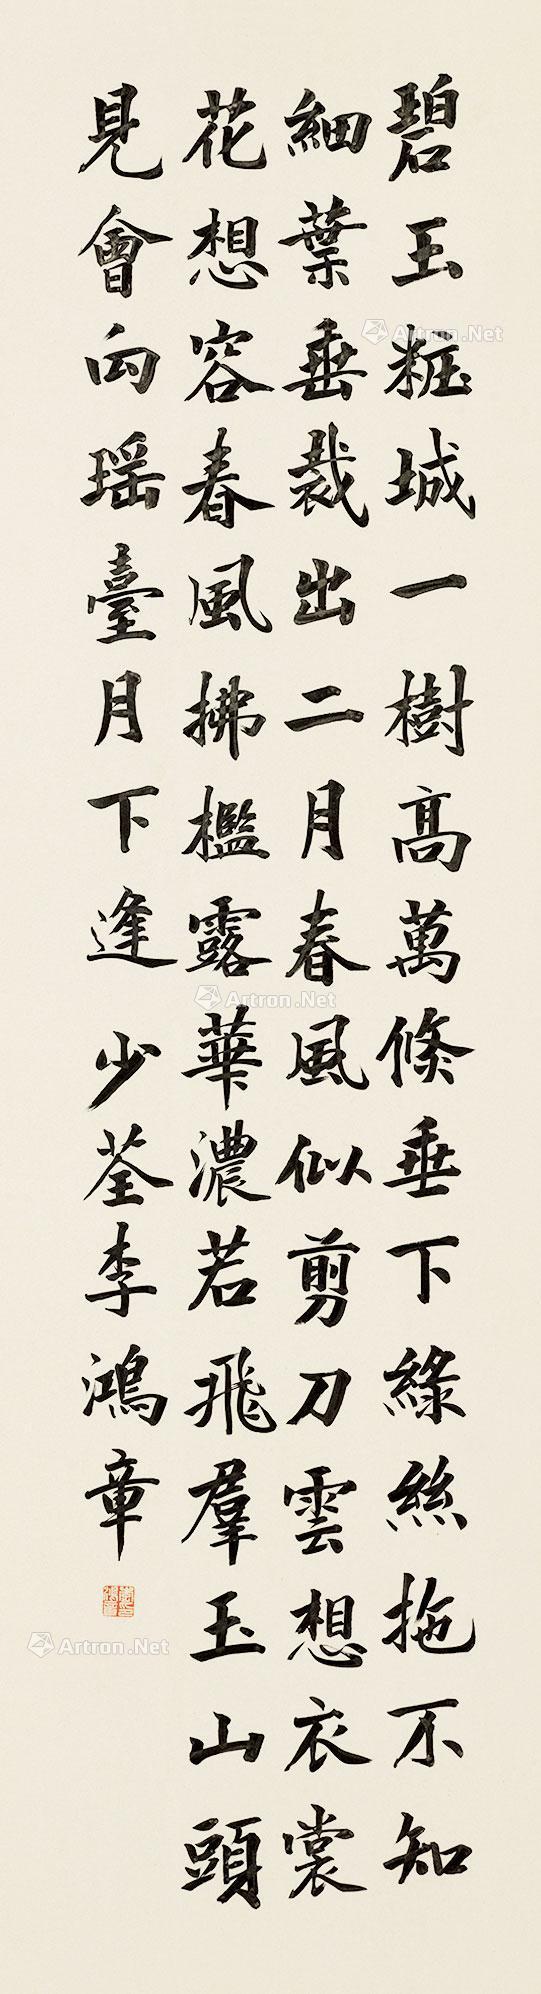 碧玉粧城一樹高萬條垂下綠絲拖不知
細葉垂裁出二月春風似剪刀雲想衣裳
花想容春風拂檻露華濃若飛羣玉山頭
見會向瑶臺月下逢 少荃李鴻章
Artron.Net
Artron.Net
Artron.Net